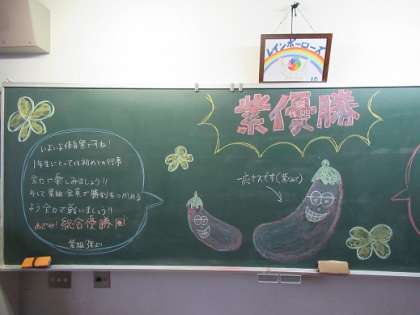 レインボーローズ
紫優勝
いよいよ体育祭ですね!
1年生にとっては初めての行事
全力で楽しみましょう!!
そして紫組全員で勝利をつかめる
よう全力で戦いましょう!!
めざせ!総合優勝
一応ナスです(紫なので)